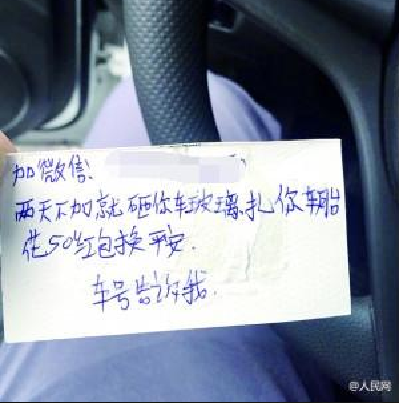 加微信:
两天不加就砸你车玻璃扎你车胎
花50红包换平安.
车号告诉我.
@人民网